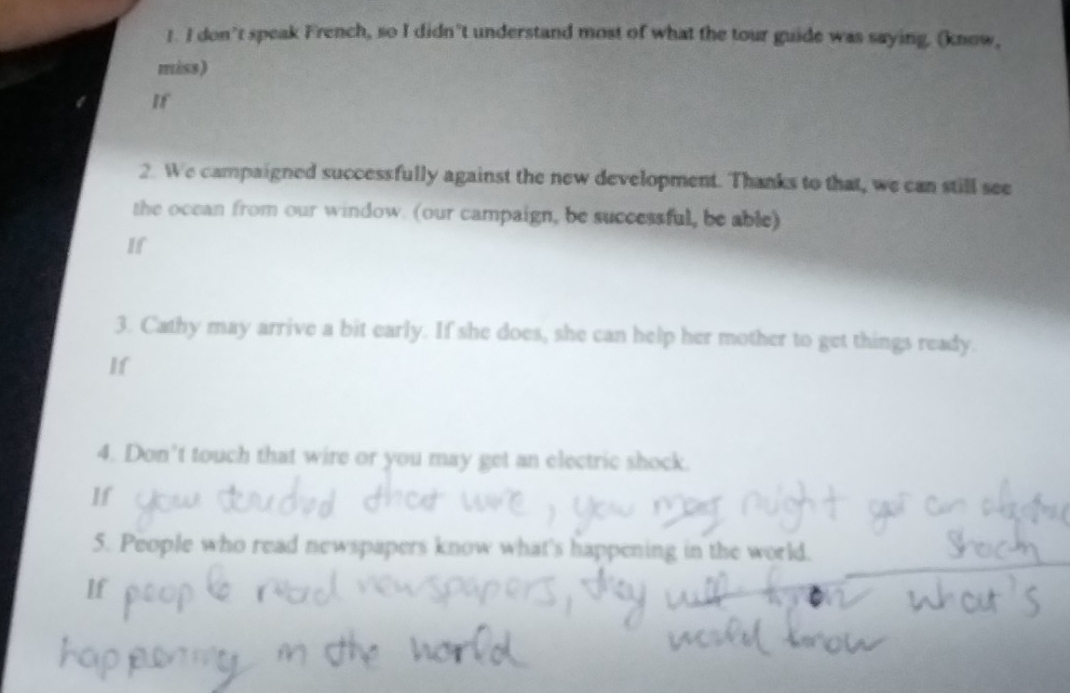 1. I don't speak French, so I didn"t understand most of what the tour guide was saying. (know,
miss)
If
2. We campaigned successfully against the new development. Thanks to that, we can still see
the ocean from our window. (our campaign, be successful, be able)
If
3. Cathy may arrive a bit early. If she does, she can help her mother to get things ready.
If
4. Don't touch that wire or you may get an electric shock.
If you touched that wire, you may might get an electric
shock
5. People who read newspapers know what's happening in the world.
If people read newspapers, they will know what's
would know
happening in the world